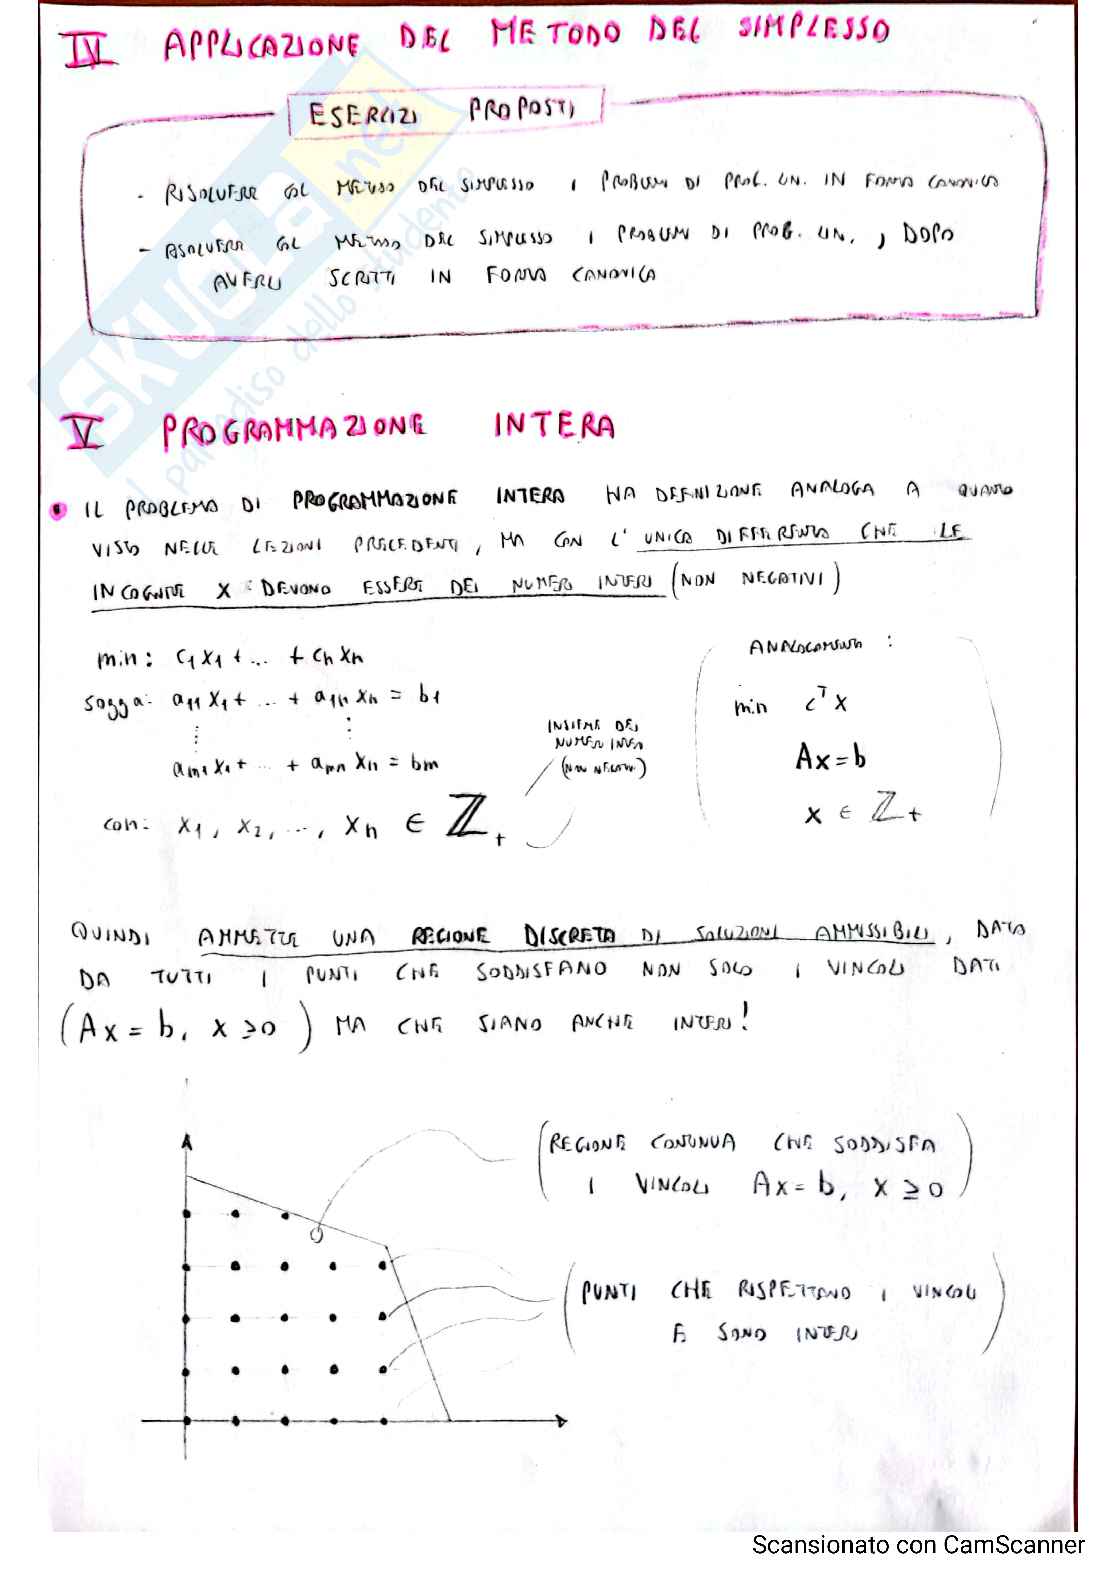 IV APPLICAZIONE DEL METODO DEL SIMPLESSO
ESERCIZI PROPOSTI
- RISOLVERE COL METODO DEL SIMPLESSO I PROBLEMI DI PROG. LIN. IN FORMA CANONICA
- RISOLVERE COL METODO DEL SIMPLESSO I PROBLEMI DI PROG. LIN., DOPO
AVERLI SCRITTI IN FORMA CANONICA
SKUOLA.net
il paradiso dello studente
V PROGRAMMAZIONE INTERA
• IL PROBLEMA DI PROGRAMMAZIONE INTERA HA DEFINIZIONE ANALOGA A QUANTO
VISTO NELLE LEZIONI PRECEDENTI, MA CON L'UNICA DIFFERENZA CHE LE
INCOGNITE X DEVONO ESSERE DEI NUMERI INTERI (NON NEGATIVI)
min: c₁x₁ + ... + cₙxₙ
sogga: a₁₁x₁ + ... + a₁ₙxₙ = b₁
⋮ ⋮
aₘ₁x₁ + ... + aₘₙxₙ = bₘ
con: x₁, x₂, ..., xₙ ∈ ℤ₊
INSIEME DEI
NUMERI INTERI
(NON NEGATIVI)
ANALOGAMENTE :
min cᵀx
Ax = b
x ∈ ℤ₊
QUINDI AMMETTE UNA REGIONE DISCRETA DI SOLUZIONI AMMISSIBILI, DATA
DA TUTTI I PUNTI CHE SODDISFANO NON SOLO I VINCOLI DATI
(Ax = b, x ≥ 0) MA CHE SIANO ANCHE INTERI!
(REGIONE CONTINUA CHE SODDISFA
I VINCOLI Ax = b, x ≥ 0)
(PUNTI CHE RISPETTANO I VINCOLI
E SONO INTERI)
Scansionato con CamScanner